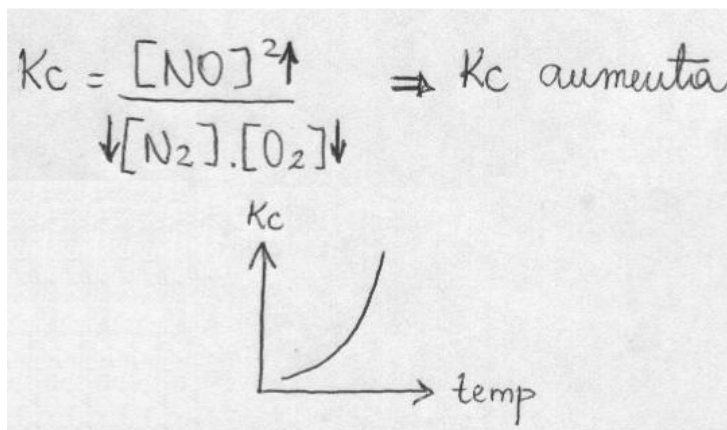 Kc = [NO]²↑ / ↓[N₂].[O₂]↓ ⇒ Kc aumenta
Kc
temp